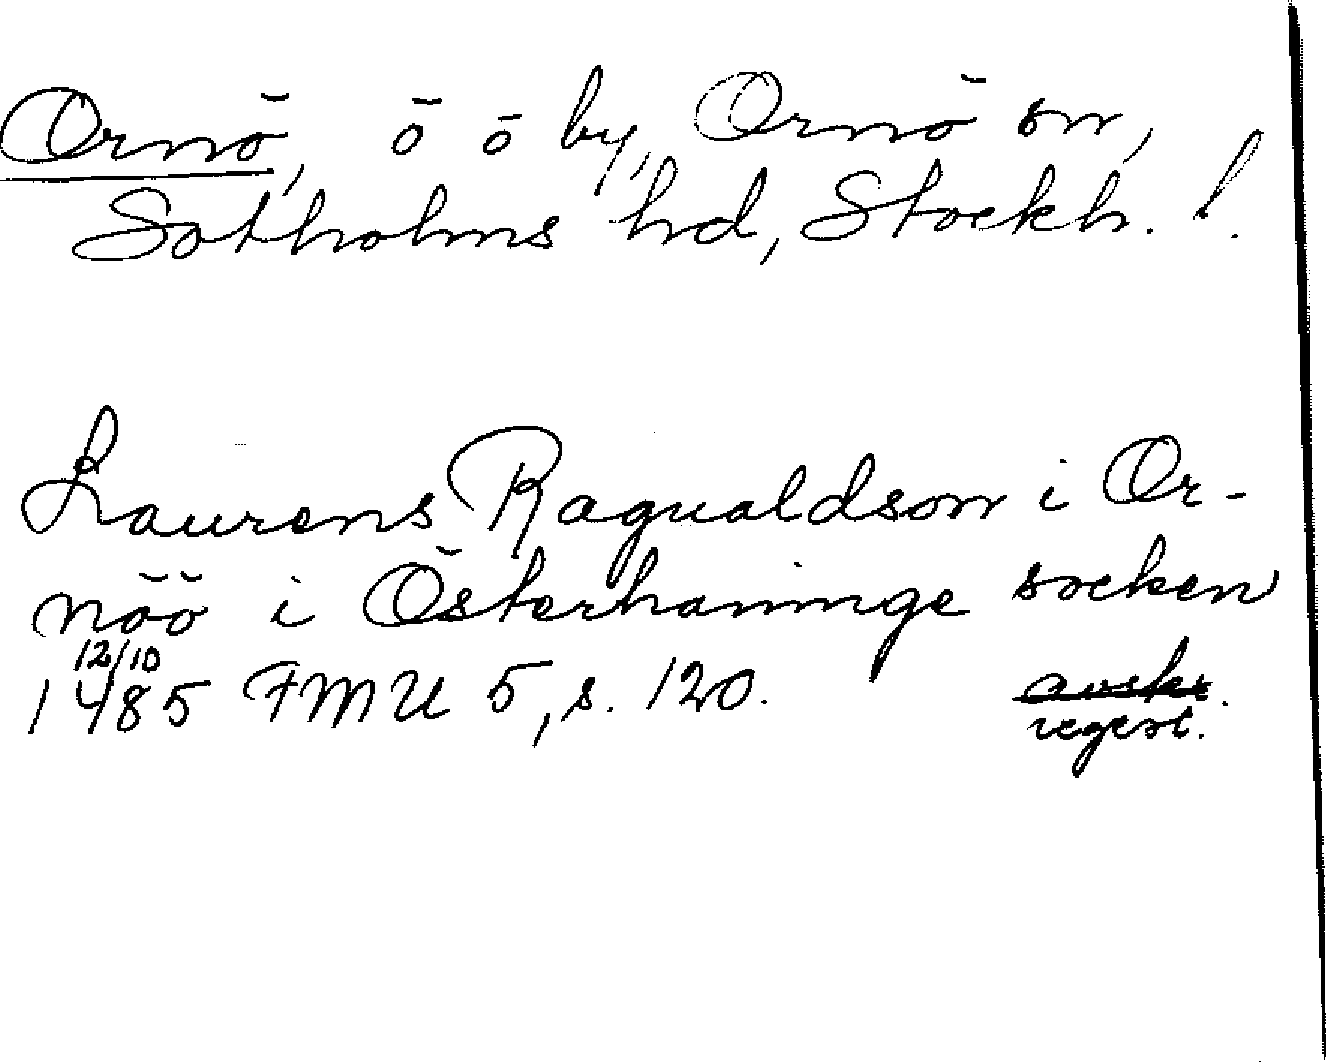 Ornö, ö ö by, Ornö sn,
Sotholms hd, Stockh. !
Laurens Ragualdson i Or-
nöö i Österhaninge socken
12/10
1485 FMU 5, s. 120. avskr.
regest.